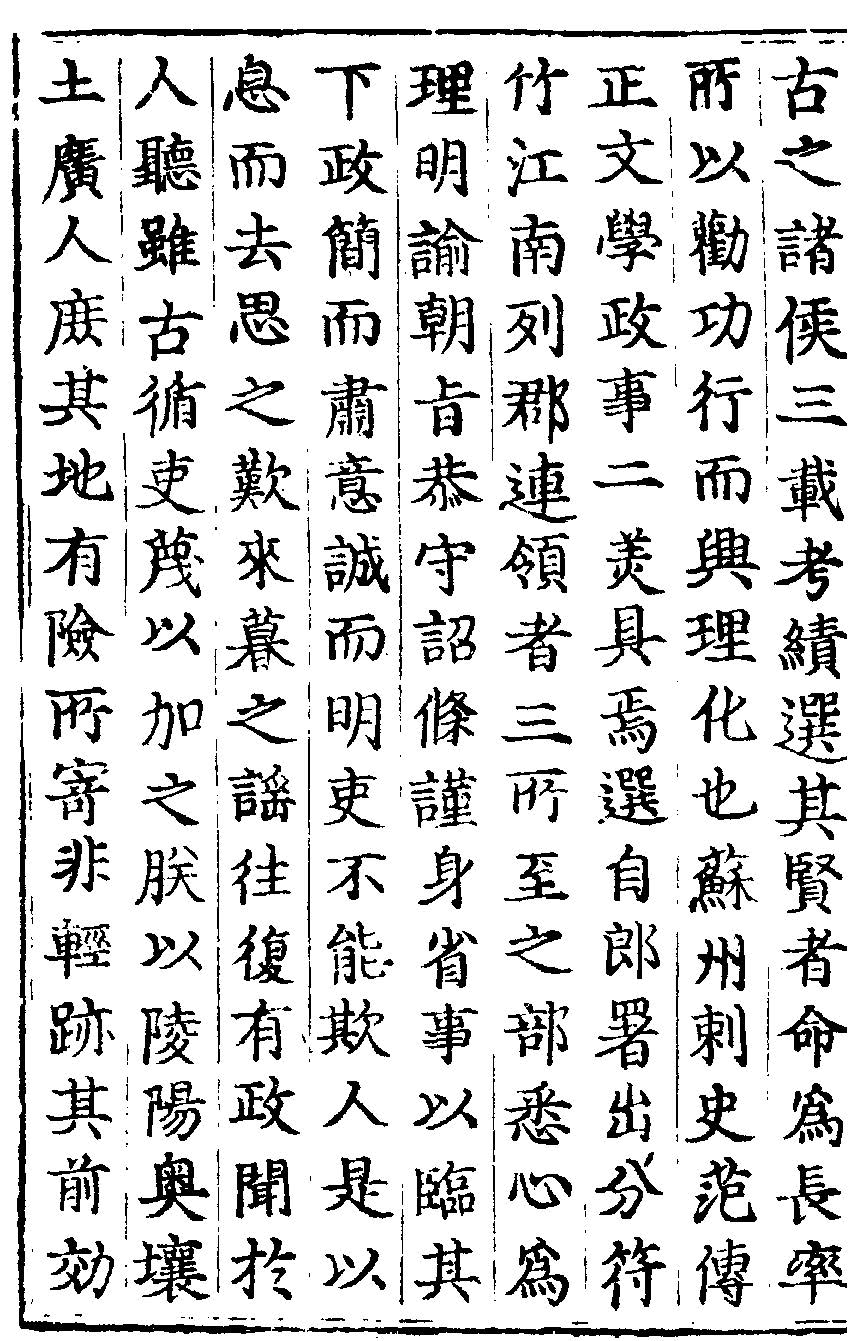 古之諸侯三載考績選其賢者命爲長率
所以勸功行而興理化也蘇州刺史范傳
正文學政事二美具焉選自郎署出分符
竹江南列郡連領者三所至之部悉心爲
理明諭朝旨恭守詔條謹身省事以臨其
下政簡而肅意誠而明吏不能欺人是以
息而去思之歎來暮之謡往復有政聞於
人聽雖古循吏蔑以加之朕以陵陽奥壤
土廣人庶其地有險所寄非輕跡其前効